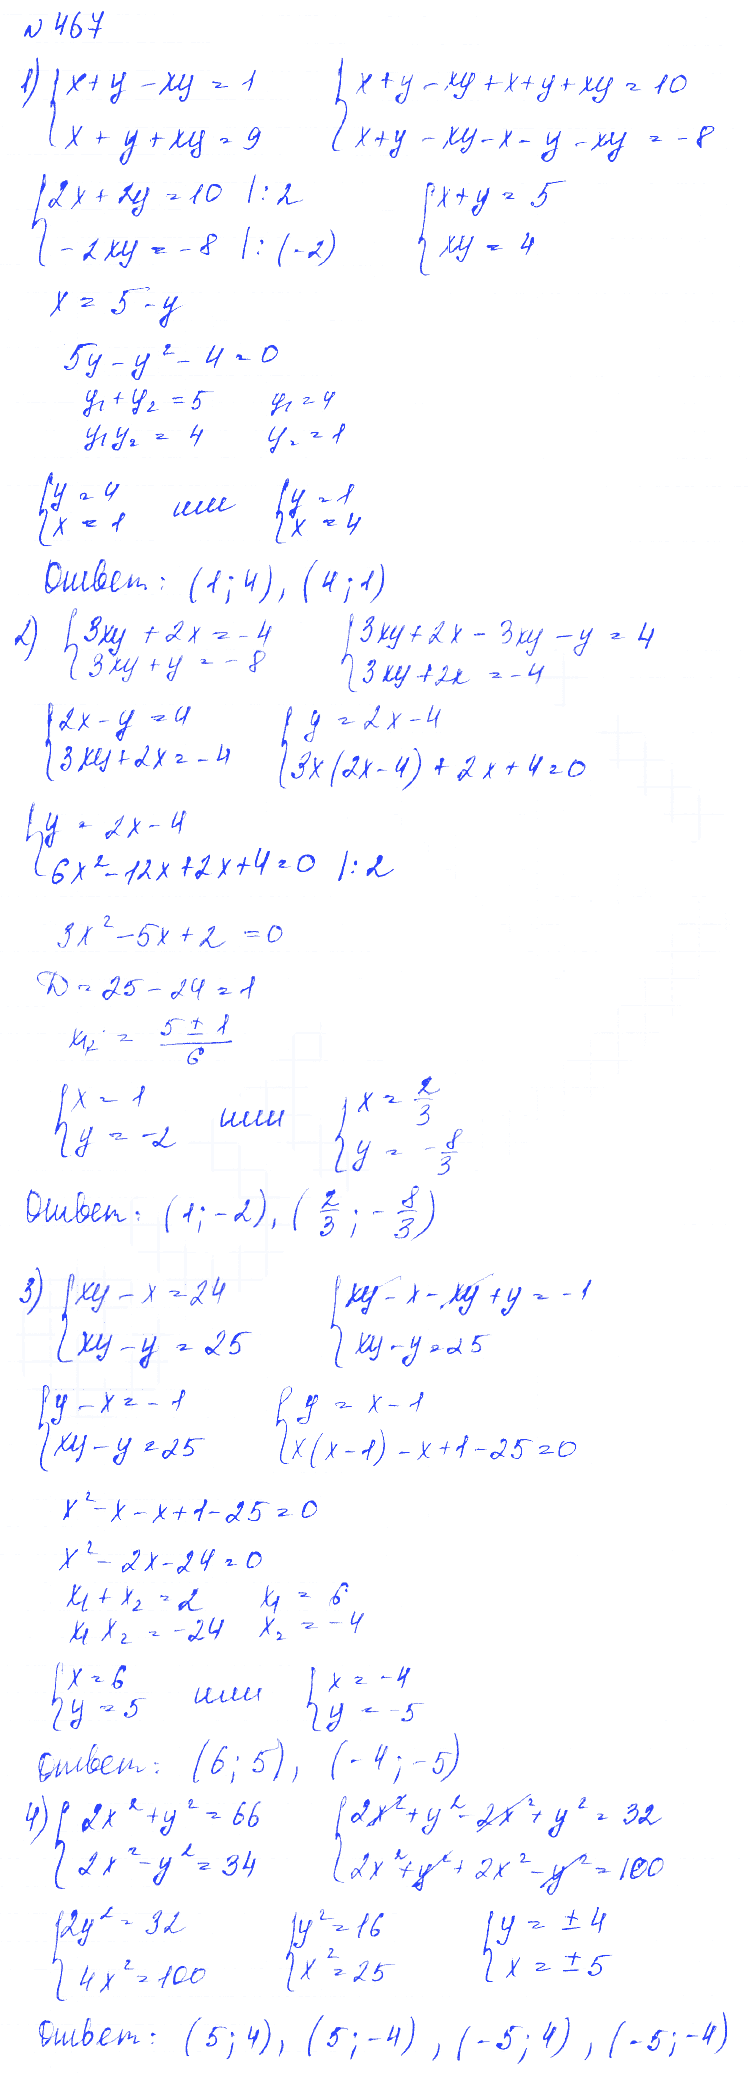 № 467
1) { x + y - xy = 1    { x + y - xy + x + y + xy = 10
{ x + y + xy = 9    { x + y - xy - x - y - xy = -8
{ 2x + 2y = 10 |: 2    { x + y = 5
{ -2xy = -8 |: (-2)    { xy = 4
x = 5 - y
5y - y² - 4 = 0
y₁ + y₂ = 5    y₁ = 4
y₁y₂ = 4    y₂ = 1
{ y = 4    или    { y = 1
{ x = 1    { x = 4
Ответ: (1; 4), (4; 1)
2) { 3xy + 2x = -4    { 3xy + 2x - 3xy - y = 4
{ 3xy + y = -8    { 3xy + 2x = -4
{ 2x - y = 4    { y = 2x - 4
{ 3xy + 2x = -4    { 3x(2x - 4) + 2x + 4 = 0
{ y = 2x - 4
{ 6x² - 12x + 2x + 4 = 0 |: 2
3x² - 5x + 2 = 0
D = 25 - 24 = 1
x₁,₂ = (5 ± 1)/6
{ x = 1    или    { x = 2/3
{ y = -2    { y = -8/3
Ответ: (1; -2), (2/3; -8/3)
3) { xy - x = 24    { xy - x - xy + y = -1
{ xy - y = 25    { xy - y = 25
{ y - x = -1    { y = x - 1
{ xy - y = 25    { x(x - 1) - x + 1 - 25 = 0
x² - x - x + 1 - 25 = 0
x² - 2x - 24 = 0
x₁ + x₂ = 2    x₁ = 6
x₁x₂ = -24    x₂ = -4
{ x = 6    или    { x = -4
{ y = 5    { y = -5
Ответ: (6; 5), (-4; -5)
4) { 2x² + y² = 66    { 2x² + y² - 2x² + y² = 32
{ 2x² - y² = 34    { 2x² + y² + 2x² - y² = 100
{ 2y² = 32    { y² = 16    { y = ± 4
{ 4x² = 100    { x² = 25    { x = ± 5
Ответ: (5; 4), (5; -4), (-5; 4), (-5; -4)